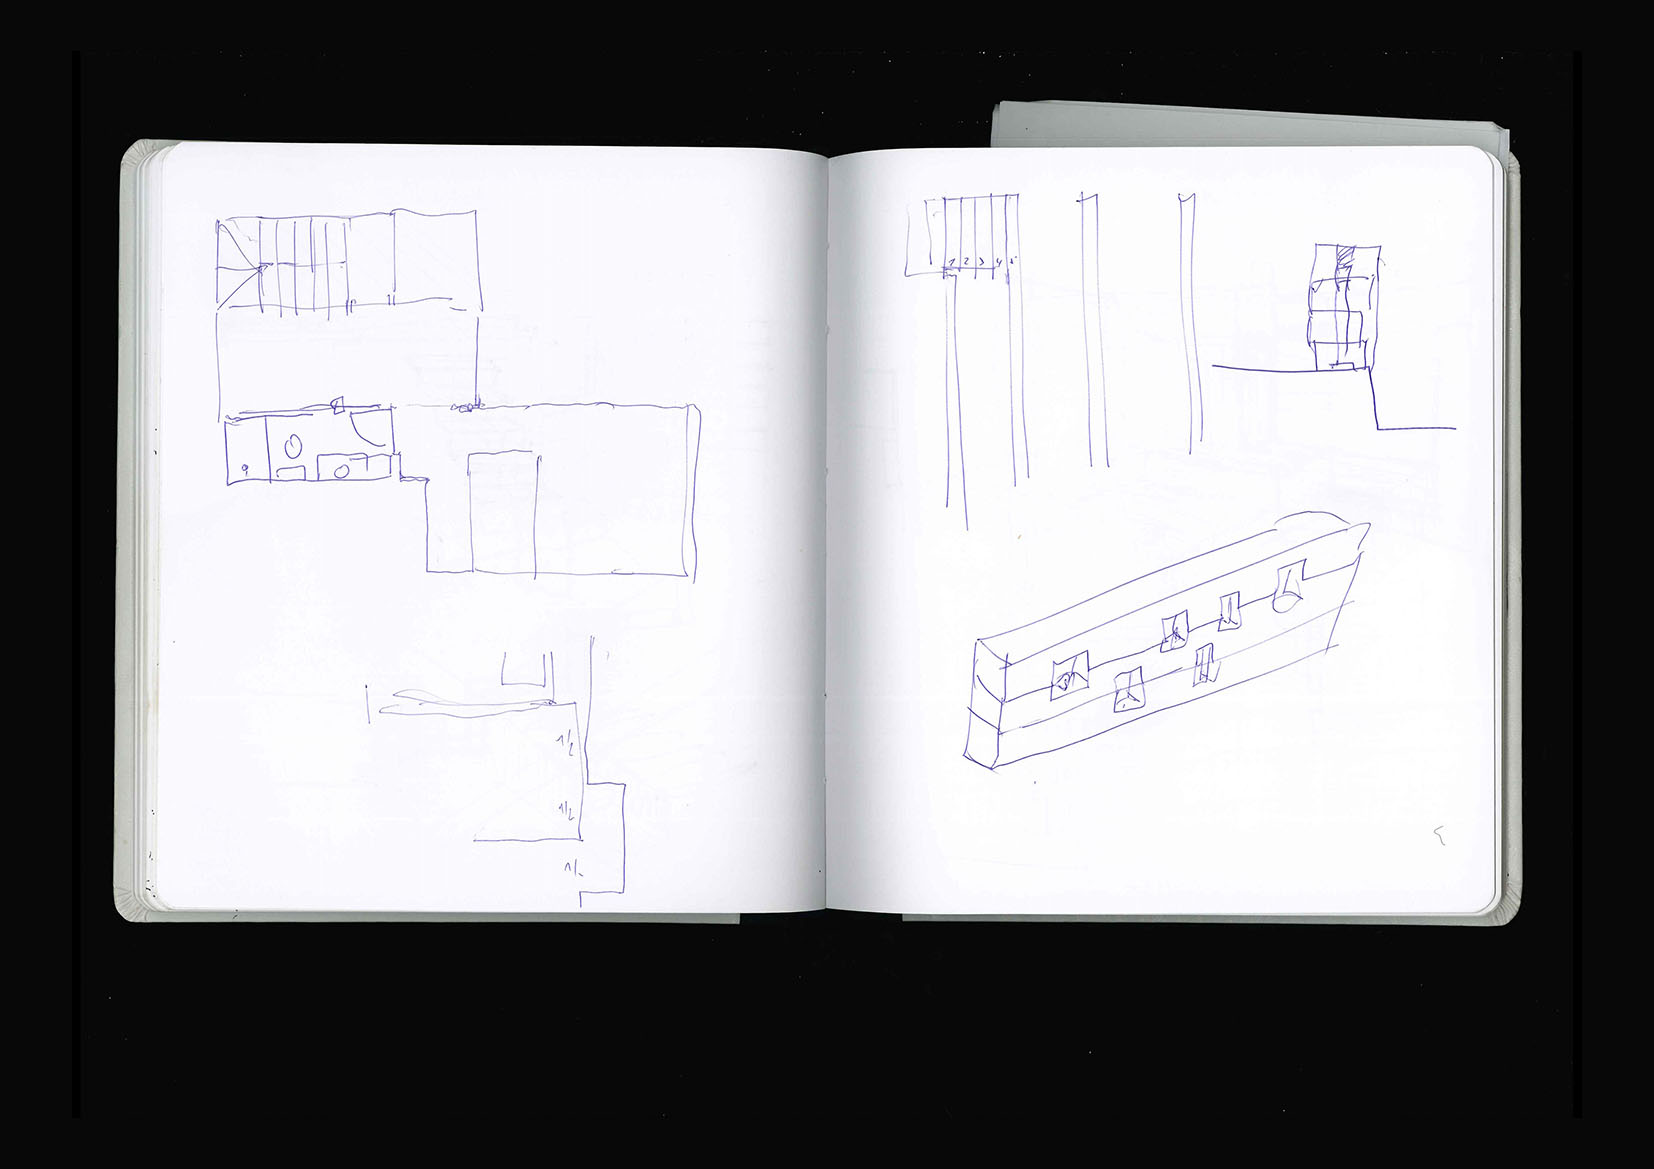 1/2
1/2
1 2 3 4 5